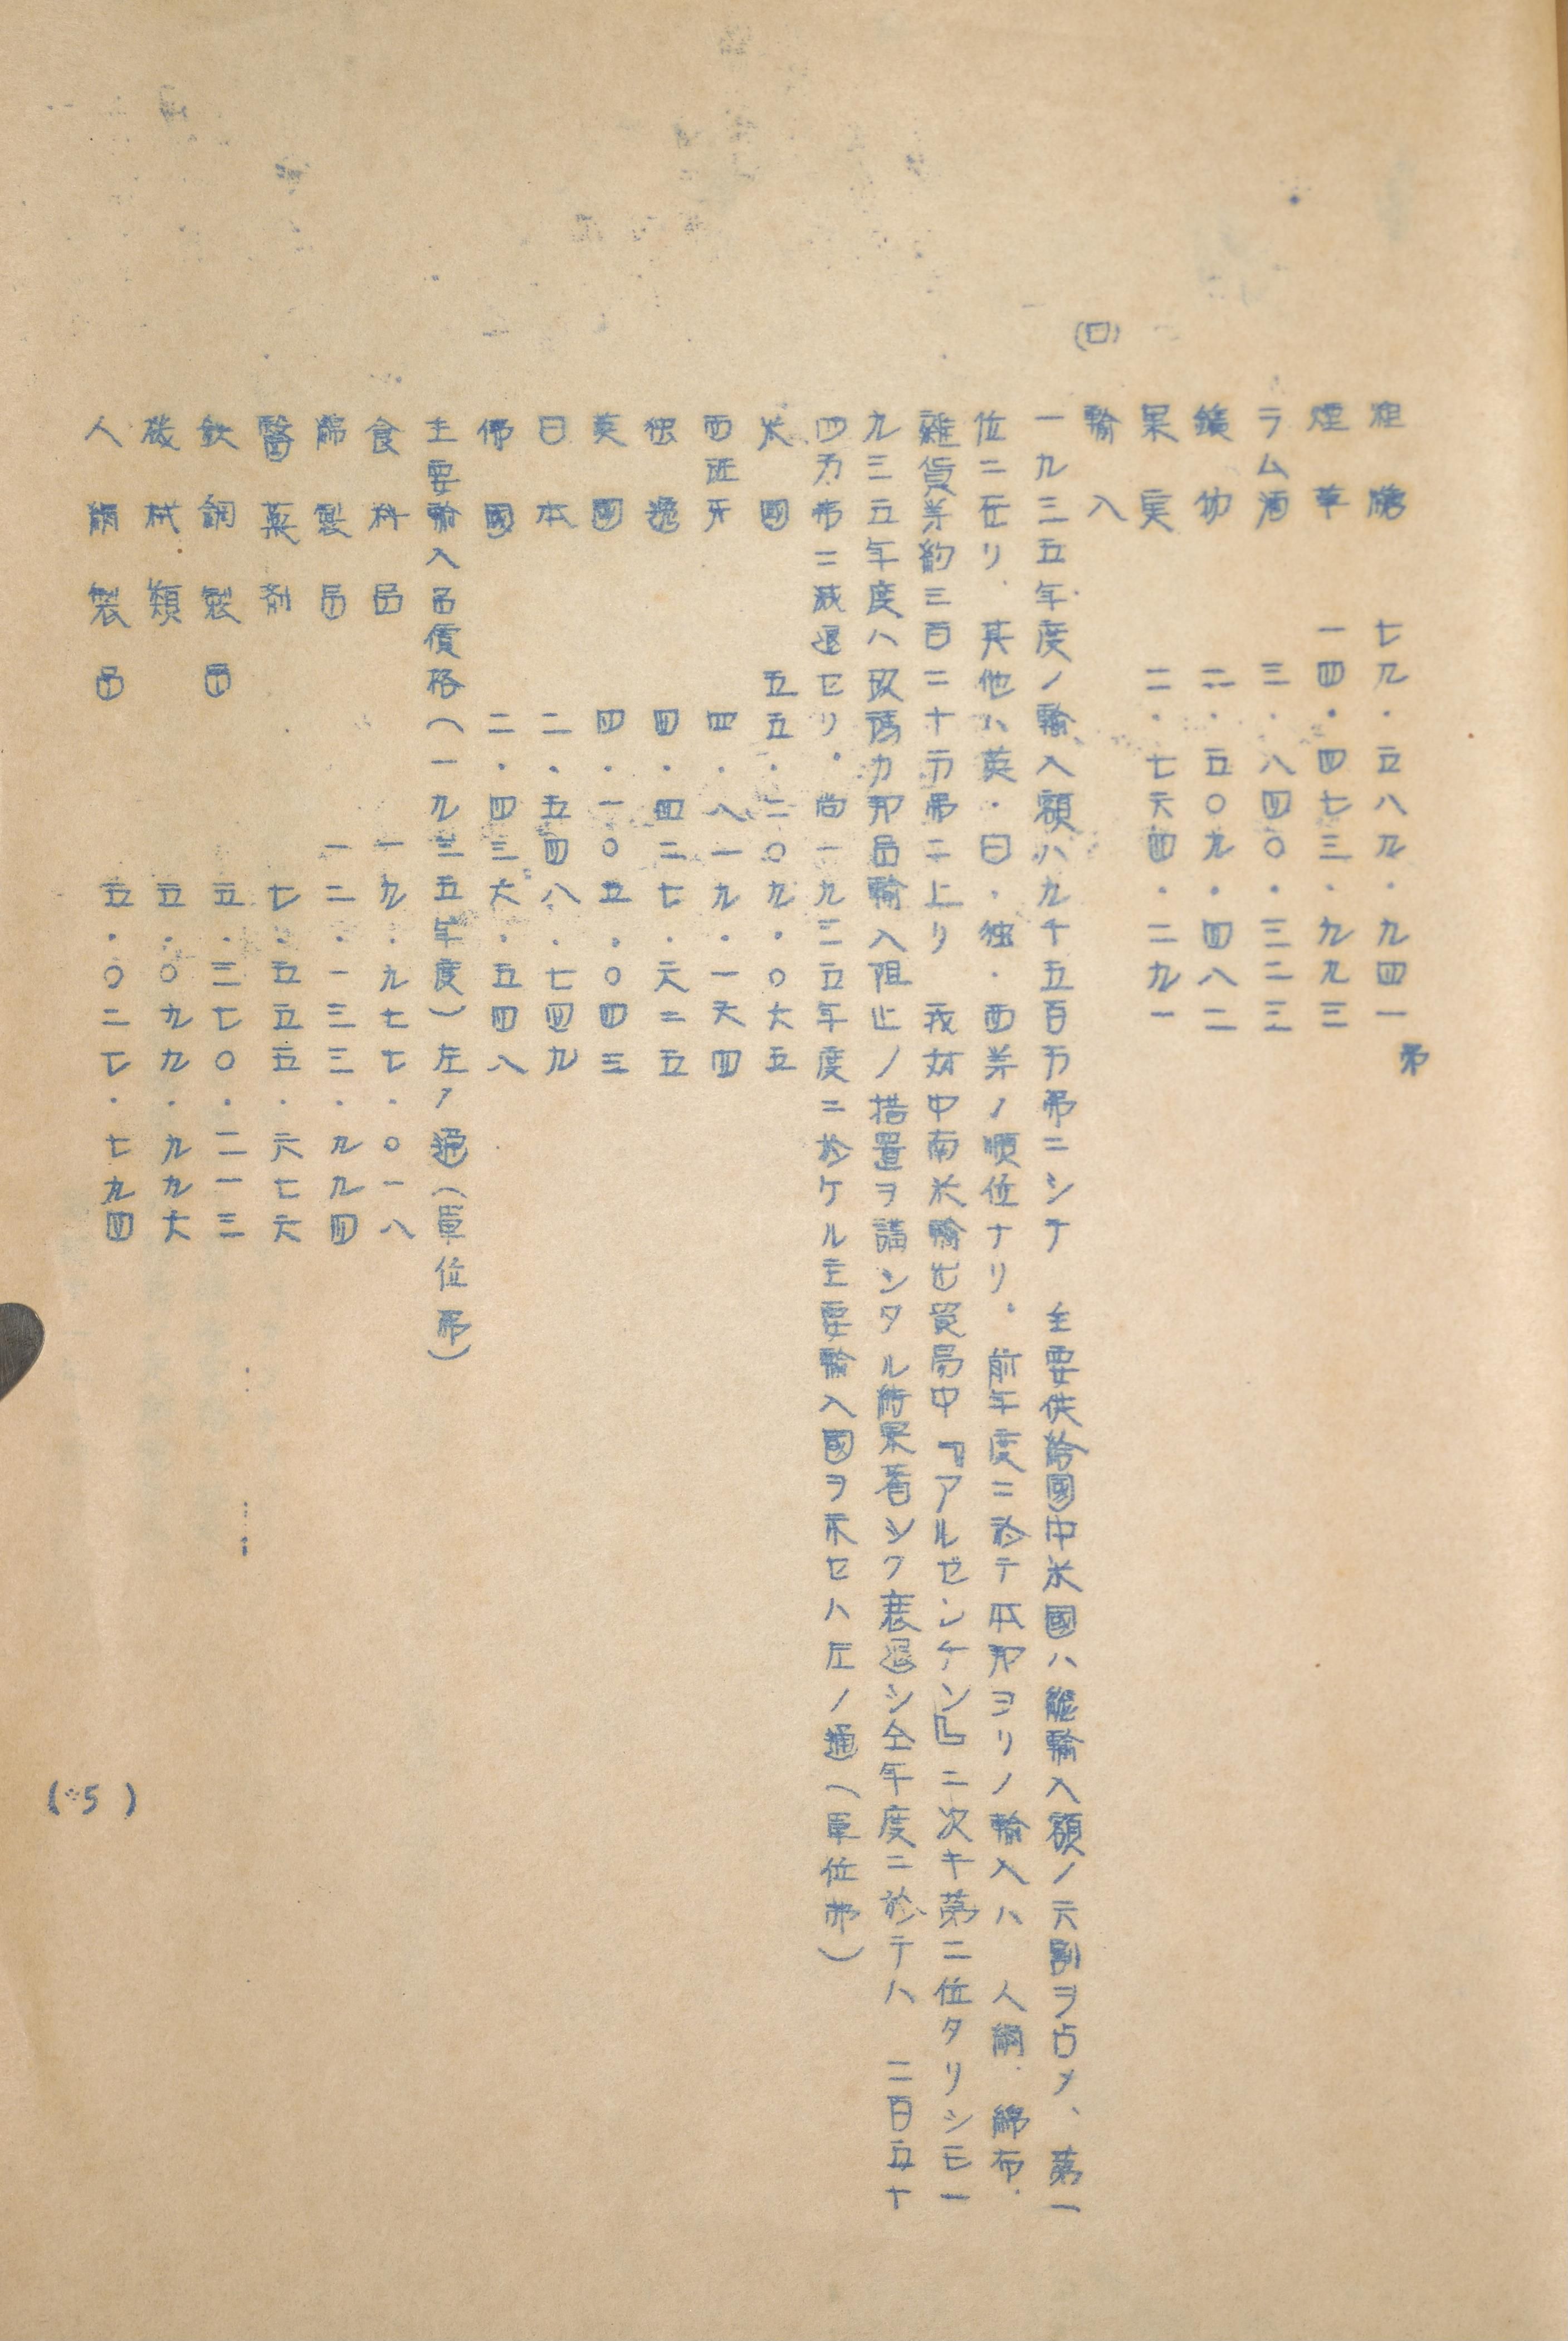 粗糖 七九・五八九・九四一弗
煙草 一四・四七三・九九三
ラム酒 三・八四〇・三二三
鑛物 二・五〇九・四八二
果実 二・七六四・二九一
(ロ) 輸入
一九三五年度ノ輸入額ハ九千五百万弗ニシテ 主要供給國中米國ハ総輸入額ノ六割ヲ占メ、第一
位ニ在リ、其他ハ英・日・独・西等ノ順位ナリ。前年度ニ於テ本邦ヨリノ輸入ハ 人絹、綿布、
雜貨等約三百二十万弗ニ上リ 我対中南米輸出貿易中『アルゼンチン』ニ次キ第二位タリシモ一
九三五年度ハ玖瑪カ邦品輸入阻止ノ措置ヲ講シタル結果著シク衰退シ仝年度ニ於テハ 二百五十
四万弗ニ減退セリ。尚一九三五年度ニ於ケル主要輸入國ヲ示セハ左ノ通(單位弗)
米國 五五・二〇九・〇六五
西班牙 四・八一九・一六四
独逸 四・四二七・六二五
英國 四・一〇五・〇四三
日本 二・五四八・七四九
佛國 二・四三六・五四八
主要輸入品價格(一九三五年度)左ノ通(單位弗)
食料品 一九・九七七・〇一八
綿製品 一二・一三三・九九四
醫薬剤 七・五五五・六七六
鉄鋼製品 五・三七〇・二一三
機械類 五・〇九九・九九六
人絹製品 五・〇二七・七九四
(5)